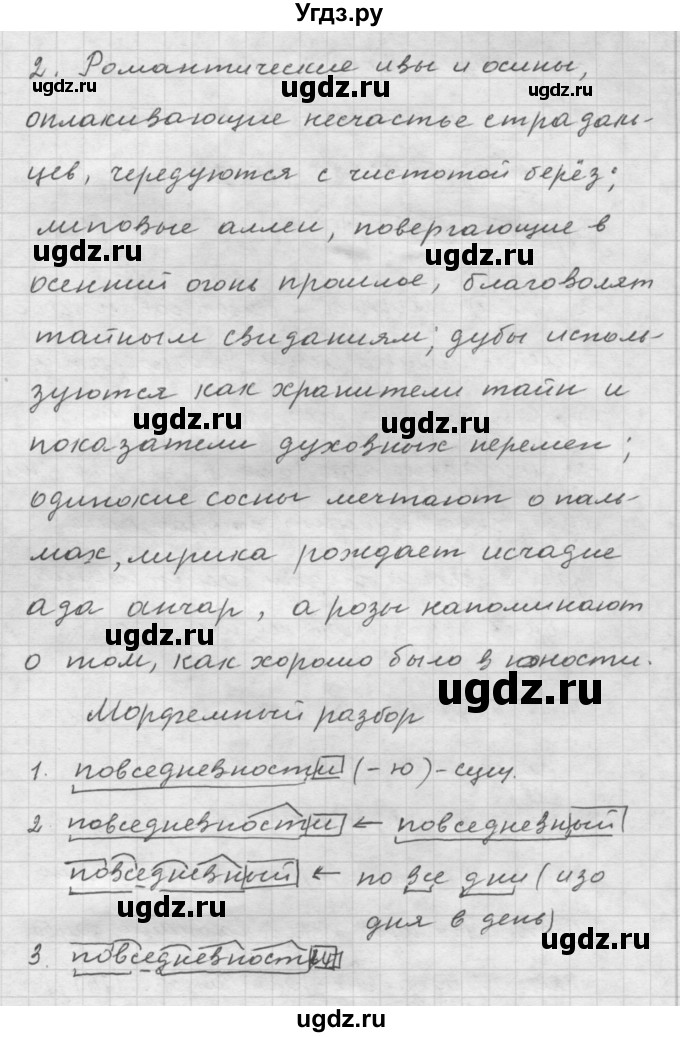 Угдз.ру
2. Романтические ивы и осины,
оплакивающие несчастье страдаль-
цев, чередуются с чистотой берёз;
липовые аллеи, повергающие в
осенний огонь прошлое, благоволят
тайным свиданиям; дубы исполь-
зуются как хранители тайн и
показатели духовных перемен;
одинокие сосны мечтают о паль-
мах, лирика рождает исчадие
ада анчар, а розы напоминают
о том, как хорошо было в юности.
Морфемный разбор
1. повседневности (-ю) - сущ.
2 повседневности ← повседневный
повседневный ← по все дни (изо
дня в день)
3. повседневности
ugdz.ru
ugdz.ru
ugdz.ru
ugdz.ru
ugdz.ru
ugdz.ru
ugdz.ru
ugdz.ru
ugdz.ru
ugdz.ru
ugdz.ru
ugdz.ru